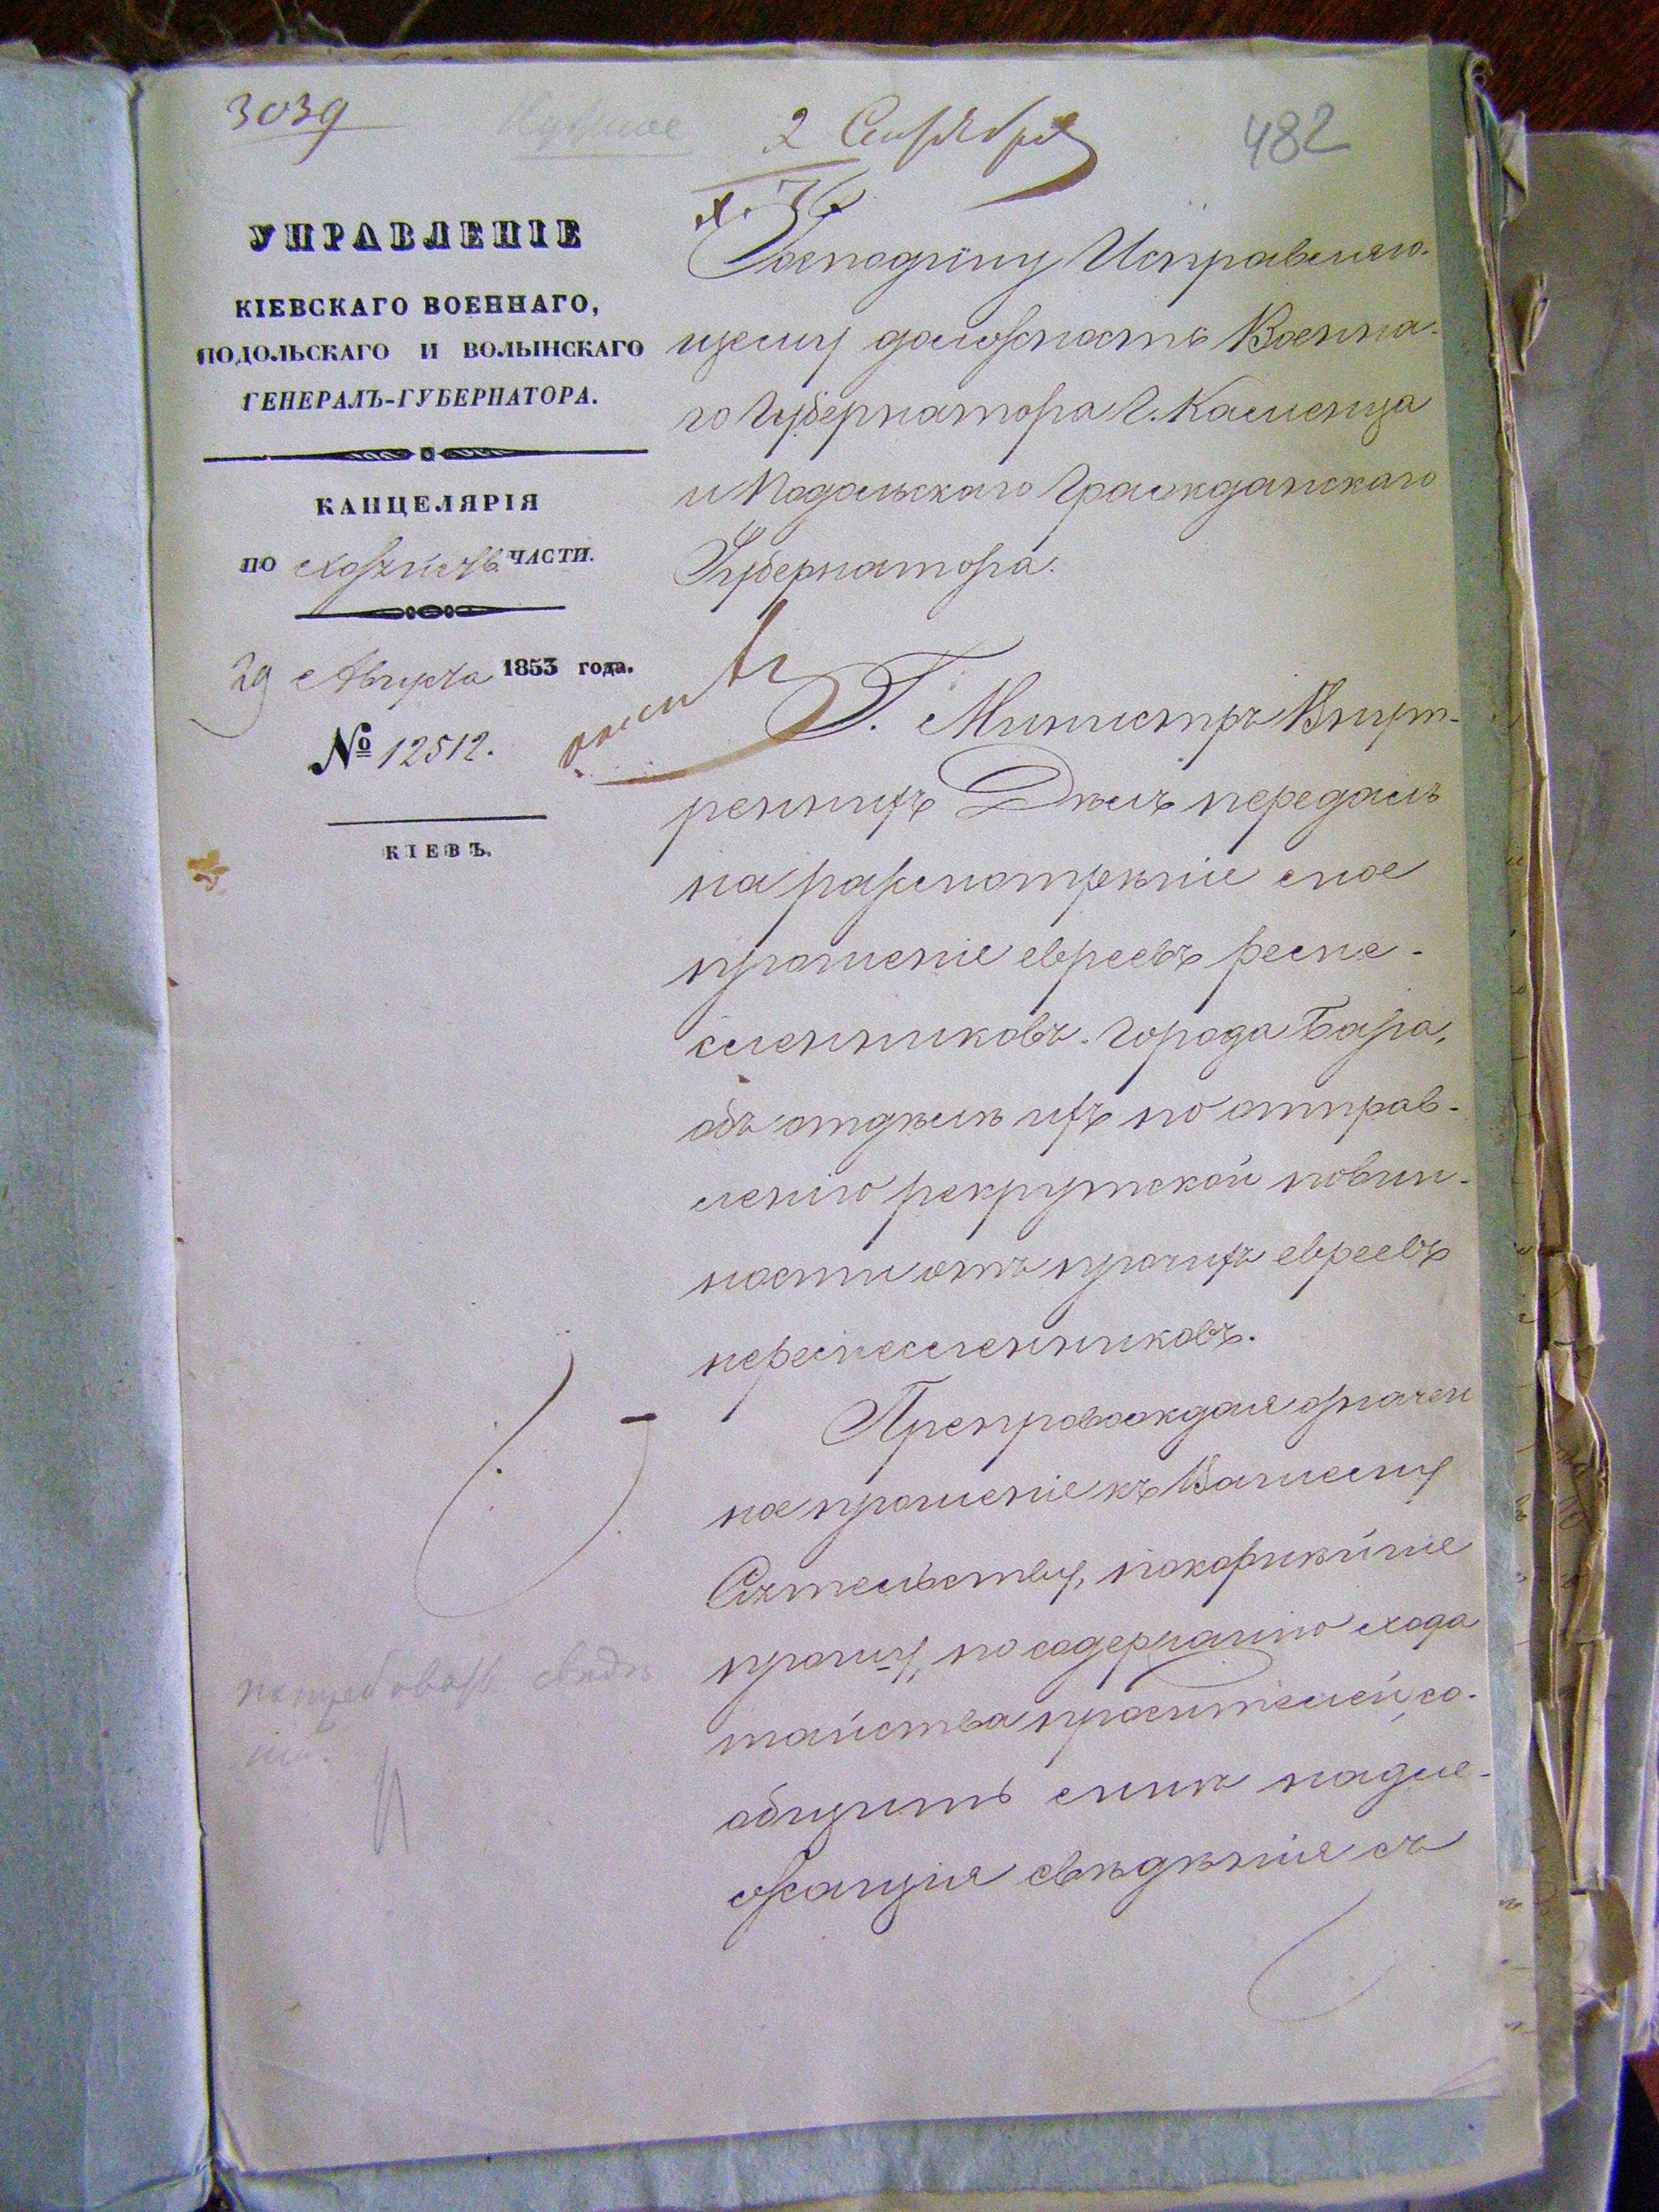 3039
Нужное
2 Сентября
482
УПРАВЛЕНІЕ
КІЕВСКАГО ВОЕННАГО,
ПОДОЛЬСКАГО И ВОЛЫНСКАГО
ГЕНЕРАЛЪ-ГУБЕРНАТОРА.
КАНЦЕЛЯРІЯ
ПО хозяйств. ЧАСТИ.
29 Августа 1853 года.
№ 12512.
КІЕВЪ.
Господину Исправляю-
щему должность Военна-
го Губернатора г. Каменца
и Подольскаго Гражданскаго
Губернатора.
Г. Министръ Внут-
реннихъ Дѣлъ передалъ
на разсмотрѣніе мое
прошеніе евреевъ реме-
сленниковъ города Бара,
объ отдѣлѣ ихъ по отправ-
ленію рекрутской повин-
ности отъ прочихъ евреевъ
неремесленниковъ.
Препровождая означен
ное прошеніе къ Вашему
Сіятельству, покорнѣйше
прошу, по содержанію хода
тайства просителей, со-
общить мнѣ надле-
жащія свѣдѣнія съ
потребовать свѣдѣ
нія.